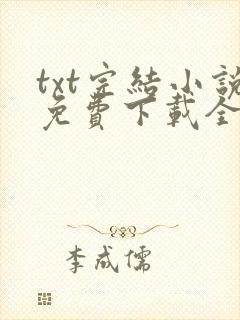 txt完結小說
免費下載全
李成儒